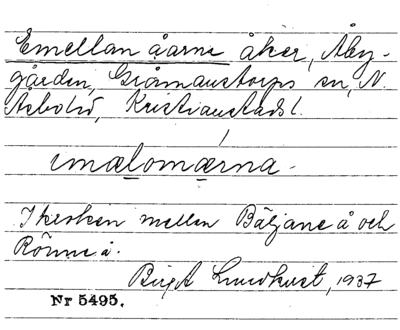 Emellan åarne åker, Åby-
gården, Gråmanstorps sn, N.
Åsbohd, Kristianstads l.
imælomærna.
I kroken mellan Bäljane å och
Rönne å.
Birgit Lundkvist, 1937
Nr 5495.